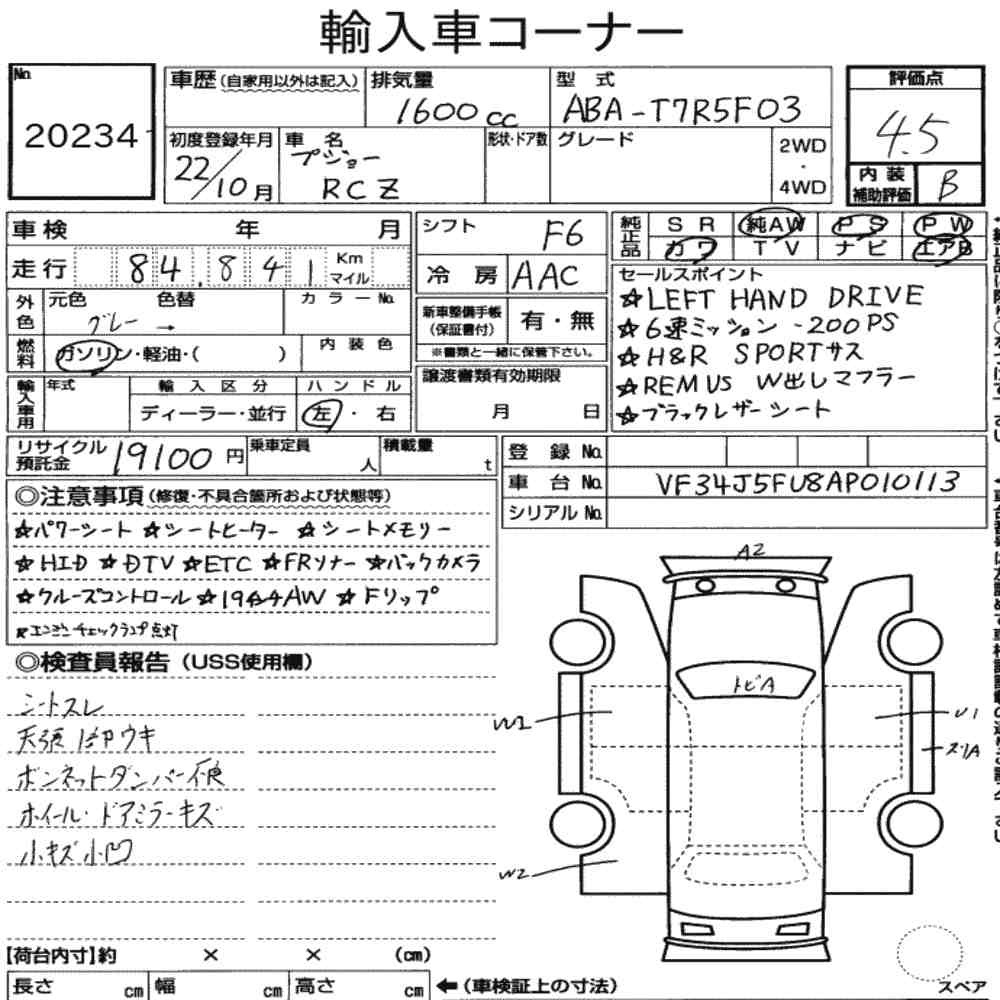 輸入車コーナー
No.
20234
車歴(自家用以外は記入)
排気量
1600cc
型式
ABA-T7R5F03
評価点
4.5
初度登録年月
22/10月
車名
プジョー
RCZ
形状・ドア数
グレード
2WD
・
4WD
内装
補助評価
B
車検 年 月
シフト
F6
純正品
SR 純AW PS PW
カワ TV ナビ エアB
走行 84,841 Km マイル
冷房
AAC
セールスポイント
☆LEFT HAND DRIVE
☆6速ミッション -200PS
☆H&R SPORTサス
☆REMUS W出しマフラー
☆ブラックレザーシート
外色
元色 色替
グレー →
カラーNo.
新車整備手帳
(保証書付)
有・無
※書類と一緒に保管下さい。
燃料
ガソリン・軽油・( )
内装色
輸入車用
年式
輸入区分
ディーラー・並行
ハンドル
左・右
譲渡書類有効期限
月 日
リサイクル
預託金
19100円
乗車定員
人
積載量
t
登録No.
車台No.
VF34J5FU8AP010113
シリアルNo.
◎注意事項(修復・不具合箇所および状態等)
☆パワーシート ☆シートヒーター ☆シートメモリー
☆HID ☆DTV ☆ETC ☆FRソナー ☆バックカメラ
☆クルーズコントロール ☆19インチAW ☆Fリップ
☆エンジンチェックランプ点灯
◎検査員報告(USS使用欄)
シートスレ
天張1部ウキ
ボンネットダンパー不良
ホイール・ドアミラーキズ
小キズ小凹
A2
トビA
W1
U1
スリA
W2
【荷台内寸】約 × × (cm)
長さ cm 幅 cm 高さ cm
←(車検証上の寸法)
スペア